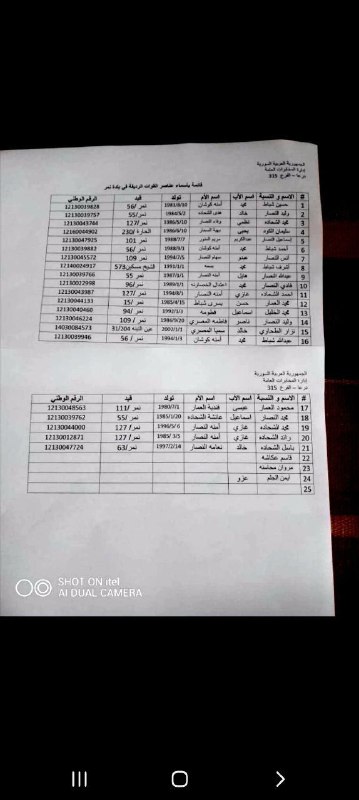 الجمهورية العربية السورية
إدارة المخابرات العامة
درعا – الفرع 315
قائمة بأسماء عناصر القوات الرديفة في بلدة نمر
# الاسم و النسبة اسم الأب اسم الأم تولد قيد الرقم الوطني
1 حسين شباط محمد آمنه كوشان 1983/8/10 نمر /56 12130039828
2 وليد النصار خالد هدى الشحاده 1984/5/2 نمر/55 12130039757
3 محمد الشحاده نظمي وفاء النصار 1986/8/10 نمر/127 12130043744
4 سليمان الكود يحيى بهية السمار 1986/6/10 الحارة /230 12160044902
5 اسماعيل النصار عبدالكريم مريم 1988/7/7 نمر 101 12130047925
6 أحمد شباط محمد آمنه كوشان 1988/9/1 نمر /56 12130039882
7 أنس النصار سهام النصار 1994/7/5 نمر 109 12130045572
8 أشرف شباط محمد 1991/1/1 الشيخ مسكين573 12140024917
9 عبدالله النصار آمنه النصار 1987/1/1 نمر 55 12130039766
10 فادي النصار محمد 1989/1/1 نمر /96 12130012998
11 أحمد الشحاده غازي آمنه النصار 1994/8/1 نمر /127 12130043987
12 محمد العمار حسن يسرى شباط 1985/4/15 نمر /15 12130044131
13 محمد الخليل اسماعيل فطومه 1992/1/3 نمر /94 12130040460
14 وليد النصار ناصر فاطمه المصري 1986/9/20 نمر /109 12130046224
15 نزار الطحاوري خالد سميا المصري 2002/1/1 عين التينه 31/204 14030084573
16 عبدالله شباط محمد آمنه كوشان 1994/1/3 نمر / 56 12130039946
الجمهورية العربية السورية
إدارة المخابرات العامة
درعا – الفرع 315
# الاسم و النسبة اسم الأب اسم الأم تولد قيد الرقم الوطني
17 محمود العمار عيسى فندية العمار 1980/7/1 نمر /111 12130048563
18 محمد النصار اسماعيل عائشة الشحاده 1985/1/20 نمر /55 12130039762
19 محمد الشحاده غازي آمنه النصار 1996/5/6 نمر / 127 12130044000
20 رائد الشحاده غازي آمنه النصار 1985/ 3/5 نمر /127 12130012871
21 باسل الشحاده خالد نعامه النصار 1997/2/14 نمر/63 12130047724
22 قاسم عكاشه
23 مروان محاسنه
24 ايمن الحلم عزو
25
SHOT ON itel
AI DUAL CAMERA